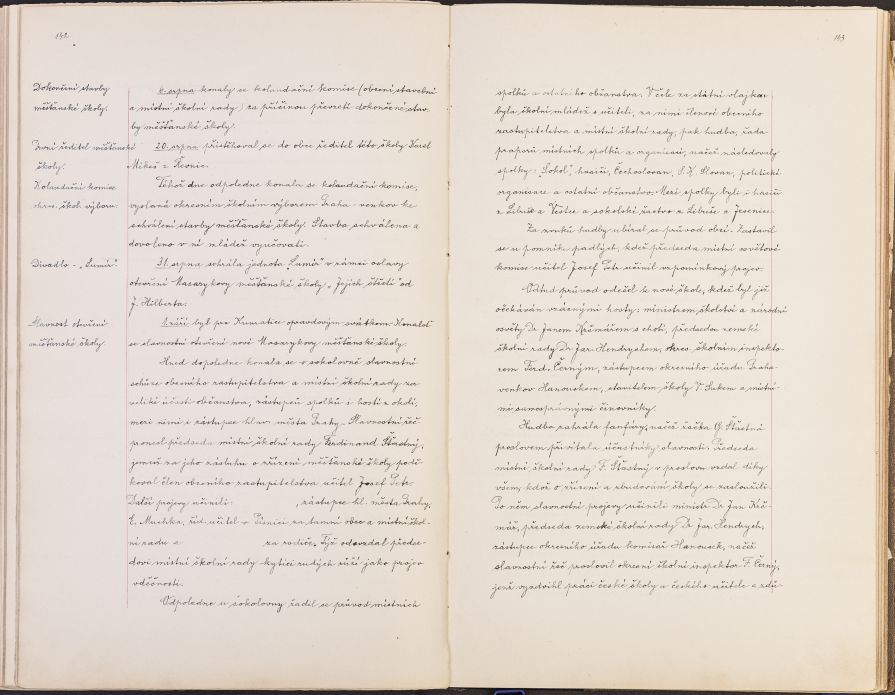 142
Dokončení stavby
měšťanské školy.
První ředitel měšťanské
školy.
Kolaudační komise
okres. škol. výboru.
Divadlo - „Lumír".
Slavnost otevření
měšťanské školy.
6. srpna konaly se kolaudační komise (obecní stavební
a místní školní rady) za příčinou převzetí dokončené stav-
by měšťanské školy.
20. srpna přistěhoval se do obce ředitel této školy Karel
Mikeš z Řevnic.
Téhož dne odpoledne konala se kolaudační komise,
vyslaná okresním školním výborem Praha - venkov ke
schválení stavby měšťanské školy. Stavba schválena a
dovoleno v ní mládež vyučovati.
31. srpna sehrála jednota „Lumír" v rámci oslavy
otevření Masarykovy měšťanské školy „Jejich štěstí" od
J. Hilberta.
1. září byl pro Kunratice opravdovým svátkem. Konalať
se slavnostní otevření nové Masarykovy měšťanské školy.
Hned dopoledne konala se v sokolovně slavnostní
schůze obecního zastupitelstva a místní školní rady za
veliké účasti občanstva, zástupců spolků i hostí z okolí,
mezi nimi i zástupce hlav. města Prahy. Slavnostní řeč
pronesl předseda místní školní rady Ferdinand Šťastný,
jemuž za jeho zásluhu o zřízení měšťanské školy podě-
koval člen obecního zastupitelstva učitel Josef Petr.
Další projevy učinili: , zástupce hl. města Prahy,
E. Muchka, říd. učitel v Písnici za tamní obec a místní škol-
ní radu a za rodiče. Týž odevzdal předse-
dovi místní školní rady kytici rudých růží jako projev
vděčnosti.
Odpoledne u sokolovny řadil se průvod místních
143
spolků a ostatního občanstva. V čele za státní vlajkou
byla školní mládež s učiteli, za nimi členové obecního
zastupitelstva a místní školní rady, pak hudba, řada
praporů místních spolků a organisací, načež následovaly
spolky: Sokol, hasiči, Čechoslovan, S. K. Slovan, politické
organisace a ostatní občanstvo. Mezi spolky byli i hasiči
z Libuše a Vestce a sokolské žactvo z Libuše a Jesenice.
Za zvuků hudby ubíral se průvod obcí. Zastavil
se u pomníku padlých, kdež předseda místní osvětové
komise učitel Josef Petr učinil vzpomínkový projev.
Odtud průvod odešel k nové škole, kdež byl již
očekáván vzácnými hosty: ministrem školství a národní
osvěty Dr Janem Krčmářem s chotí, předsedou zemské
školní rady Dr Jar. Hendrychem, okres. školním inspekto-
rem Ferd. Černým, zástupcem okresního úřadu Praha-
venkov Hanouskem, stavitelem školy V. Sukem a místní-
mi samosprávnými činovníky.
Hudba zahrála fanfáry, načež žačka Šťastná
proslovem přivítala účastníky slavnosti. Předseda
místní školní rady F. Šťastný v proslovu vzdal díky
všem, kdož o zřízení a zbudování školy se zasloužili.
Po něm slavnostní projevy učinili ministr Dr Jan Krč-
mář, předseda zemské školní rady Dr Jar. Hendrych,
zástupce okresního úřadu komisař Hanousek, načež
slavnostní řeč proslovil okresní školní inspektor F. Černý,
jenž vyzdvihl práci české školy a českého učitele a zdů-